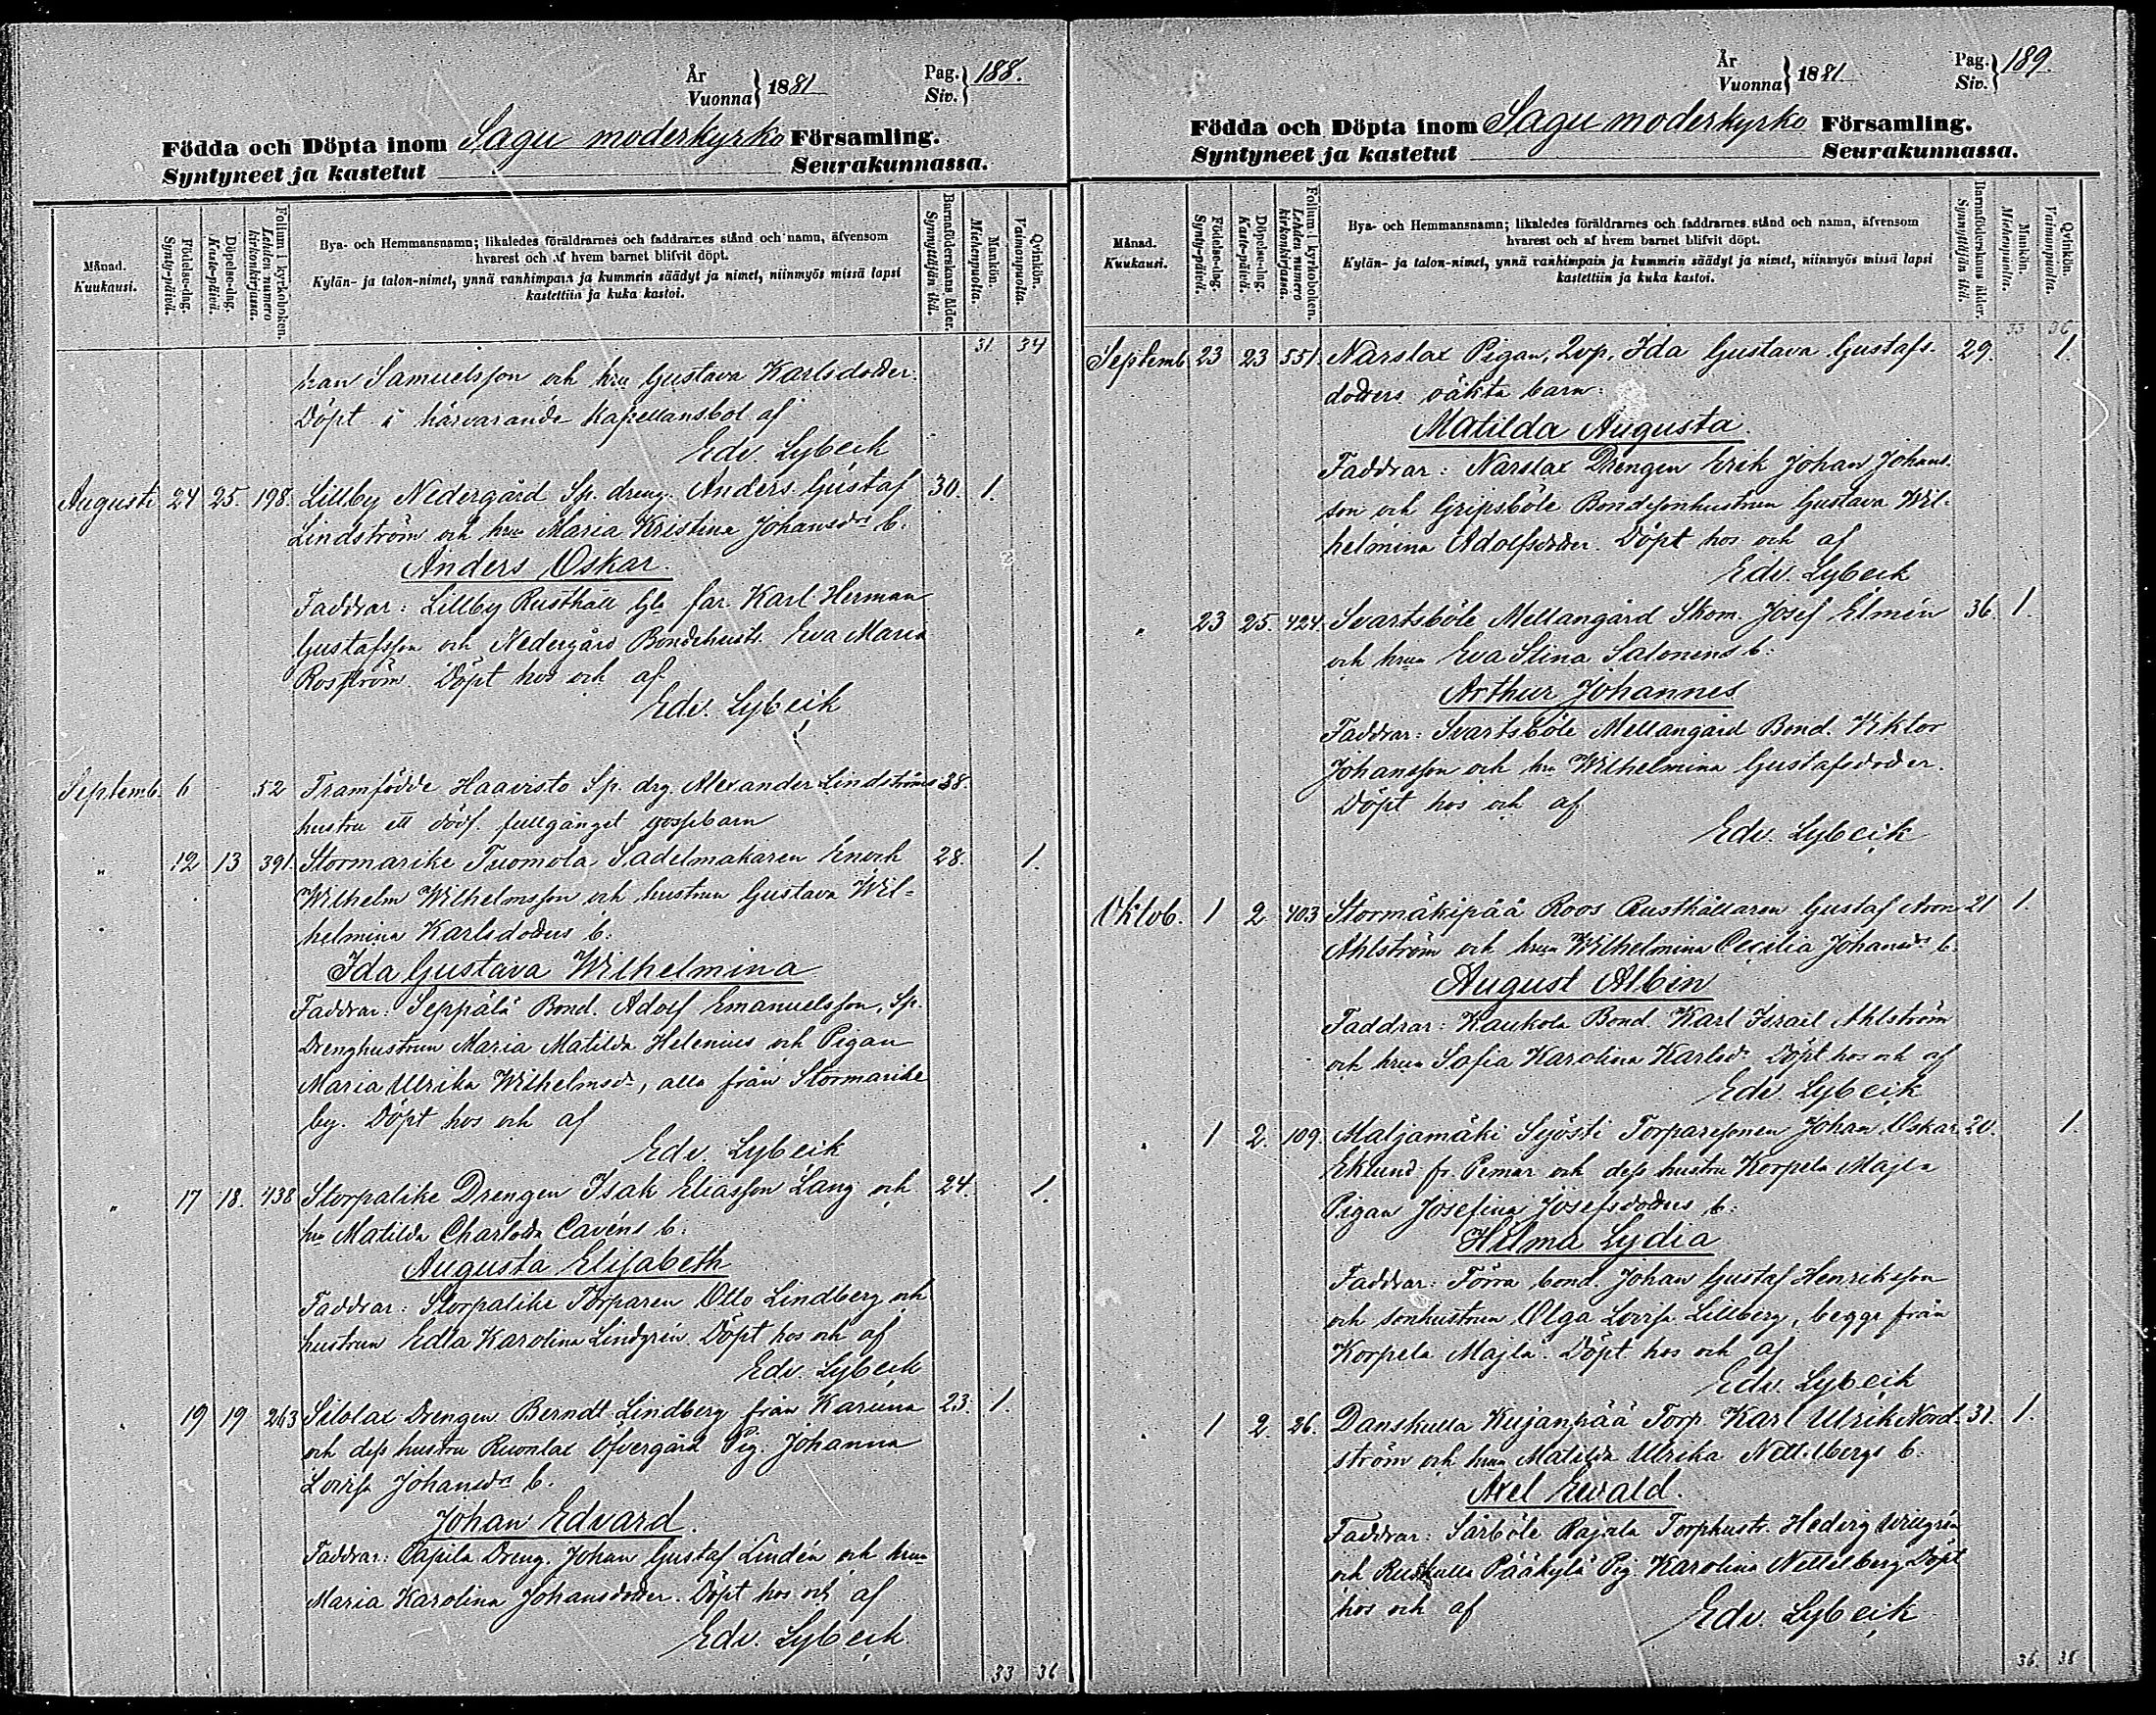 År
Vuonna 1881
Pag. 188.
Siv.
Födda och Döpta inom Sagu moderkyrko Församling.
Syntyneet ja kastetut Seurakunnassa.
Månad.
Kuukausi.
Födelse-dag.
Synty-päivä.
Döpelse-dag.
Kaste-päivä.
Folium i kyrkoboken.
Lehden numero kirkonkirjassa.
Bya- och Hemmansnamn; likaledes föräldrarnes och faddrarnes stånd och namn, äfvensom
hvarest och af hvem barnet blifvit döpt.
Kylän- ja talon-nimet, ynnä vanhimpain ja kummein säädyt ja nimet, niinmyös missä lapsi
kastettiin ja kuka kastoi.
Barnaföderskans ålder.
Synnyttäjän ikä.
Mankön.
Miehenpuolia.
Qvinkön.
Vaimonpuolia.
31 34
han Samuelsson och hru Gustava Karlsdotter.
Döpt i härvarande kapellansbol af
Edv. Lybeck
Augusti 24 25. 198. Lillby Nedergård Sp. dreng. Anders Gustaf 30. 1.
Lindström och hru Maria Kristina Johansdrs b.
Anders Oskar.
Faddrar: Lillby Rusthåll Gla far Karl Herman
Gustafsson och Nedergård Bondehustr. Eva Maria
Rosström. Döpt hos och af
Edv. Lybeck
Septemb. 6 52 Framfödde Haavisto Sp. drg Alexander Lindströms 38.
hustru ett dödf. fullgånget gossebarn
" 12 13 391. Stormarike Tuomola Sadelmakaren Enoch 28. 1.
Wilhelm Wilhelmsson och hustrun Gustava Wil-
helmina Karlsdotters b.
Ida Gustava Wilhelmina
Faddrar: Seppälä Bond. Adolf Emanuelsson, Sp.
Drenghustrun Maria Matilda Helenius och Pigan
Maria Ulrika Wilhelmsdr, alla från Stormarike
by. Döpt hos och af
Edv. Lybeck
" 17 18. 438 Storpalike Drengen Isak Eliasson Lang och 24. 1.
hru Matilda Charlotta Cavéns b.
Augusta Elisabeth
Faddrar: Storpalike Torparen Otto Lindberg och
hustrun Edla Karolina Lindgrén. Döpt hos och af
Edv. Lybeck
" 19 19 263 Silolax Drengen Berndt Lindberg från Karuna 23. 1.
och dess hustru Ruonlax Öfvergård Pig. Johanna
Lovisa Johansdrs b.
Johan Edvard.
Faddrar: Tapila Dreng. Johan Gustaf Lindén och hrun
Maria Karolina Johansdotter. Döpt hos och af
Edv. Lybeck
33 36
År
Vuonna 1881
Pag. 189
Siv.
Födda och Döpta inom Sagu moderkyrko Församling.
Syntyneet ja kastetut Seurakunnassa.
Månad.
Kuukausi.
Födelse-dag.
Synty-päivä.
Döpelse-dag.
Kaste-päivä.
Folium i kyrkoboken.
Lehden numero kirkonkirjassa.
Bya- och Hemmansnamn; likaledes föräldrarnes och faddrarnes stånd och namn, äfvensom
hvarest och af hvem barnet blifvit döpt.
Kylän- ja talon-nimet, ynnä vanhimpain ja kummein säädyt ja nimet, niinmyös missä lapsi
kastettiin ja kuka kastoi.
Barnaföderskans ålder.
Synnyttäjän ikä.
Mankön.
Miehenpuolia.
Qvinkön.
Vaimonpuolia.
33 36
Septemb 23 23 551. Narslax Pigan, Ida Gustava Gustafs- 29. 1.
dotters oäkta barn:
Matilda Augusta.
Faddrar: Narslax Drengen Erik Johan Johans-
son och Gripsböle Bondesonhustrun Gustava Wil-
helmina Adolfsdotter. Döpt hos och af
Edv. Lybeck
" 23 25. 424. Svartsböle Mellangård Skom. Josef Elmén 36. 1.
och hrun Eva Stina Salonens b.
Arthur Johannes
Faddrar: Svartsböle Mellangård Bond. Viktor
Johansson och hru Wilhelmina Gustafsdotter.
Döpt hos och af
Edv. Lybeck
Oktob. 1 2 403 Stormäkipää Roos Rusthållaren Gustaf Aron 21 1.
Ahlström och hrun Wilhelmina Cecilia Johansdrs b.
August Albin
Faddrar: Kaukola Bond. Karl Israel Ahlström
och hrun Sofia Karolina Karlsdr. Döpt hos och af
Edv. Lybeck
" 1 2. 109. Maljamäki Syösti Torparesonen Johan Oskar 20. 1.
Eklund fr. Pemar och dess hustru Korpela Majla
Pigan Josefina Josefsdotters b.
Hilma Lydia
Faddrar: Förra bond. Johan Gustaf Henriksson
och sonhustrun Olga Lovisa Lillberg, begge från
Korpela Majla. Döpt hos och af
Edv. Lybeck
" 1 2 26. Danskulla Kujanpää Torp. Karl Ulrik Nord- 31. 1.
ström och hrun Matilda Ulrika Nettelbergs b.
Axel Ewald.
Faddrar: Särböle Rajala Torphustr. Hedvig Willgrén
och Ruskulla Pääkylä Pig Karolina Nettelberg Döpt
hos och af
Edv. Lybeck
36. 38